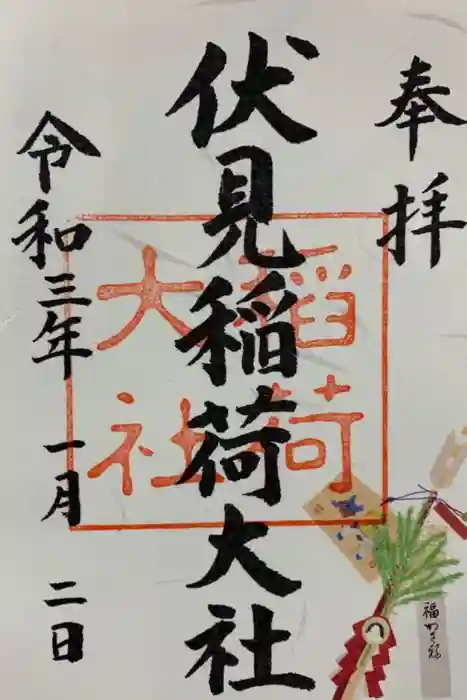 奉拝
伏見稲荷大社
令和三年 一月 二日
稲荷
大社